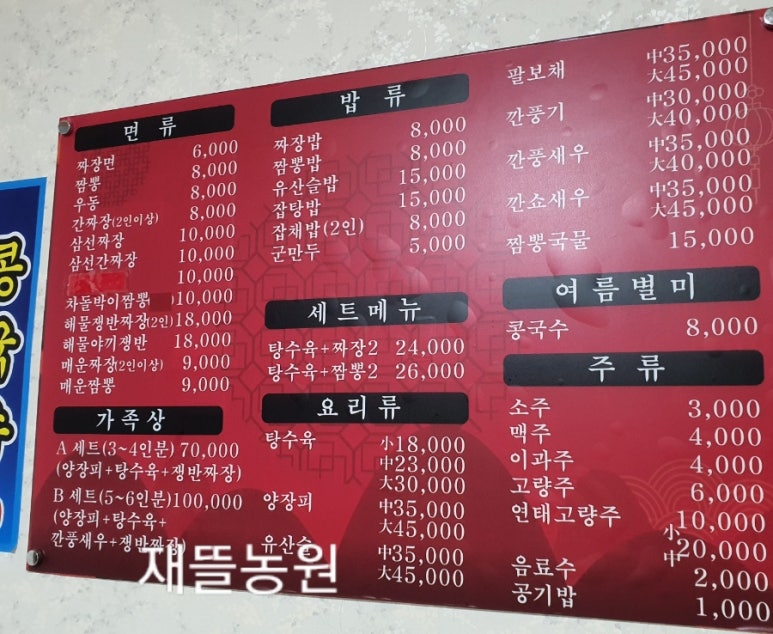 면 류
짜장면 6,000
짬뽕 8,000
우동 8,000
간짜장(2인이상) 8,000
삼선짜장 10,000
삼선간짜장 10,000
10,000
차돌박이짬뽕( )10,000
해물쟁반짜장(2인)18,000
해물야끼쟁반 18,000
매운짜장(2인이상) 9,000
매운짬뽕 9,000
가 족 상
A 세트(3~4인분) 70,000
(양장피+탕수육+쟁반짜장)
B 세트(5~6인분)100,000
(양장피+탕수육+
깐풍새우+쟁반짜장)
밥 류
짜장밥 8,000
짬뽕밥 8,000
유산슬밥 15,000
잡탕밥 15,000
잡채밥(2인) 8,000
군만두 5,000
세트메뉴
탕수육+짜장2 24,000
탕수육+짬뽕2 26,000
요 리 류
탕수육 小18,000
中23,000
大30,000
양장피 中35,000
大45,000
유산슬 中35,000
大45,000
팔보채 中35,000
大45,000
깐풍기 中30,000
大40,000
깐풍새우 中35,000
大40,000
깐쇼새우 中35,000
大45,000
짬뽕국물 15,000
여름별미
콩국수 8,000
주 류
소주 3,000
맥주 4,000
이과주 4,000
고량주 6,000
연태고량주 小10,000
中20,000
음료수 2,000
공기밥 1,000
콩국수
재뜰농원